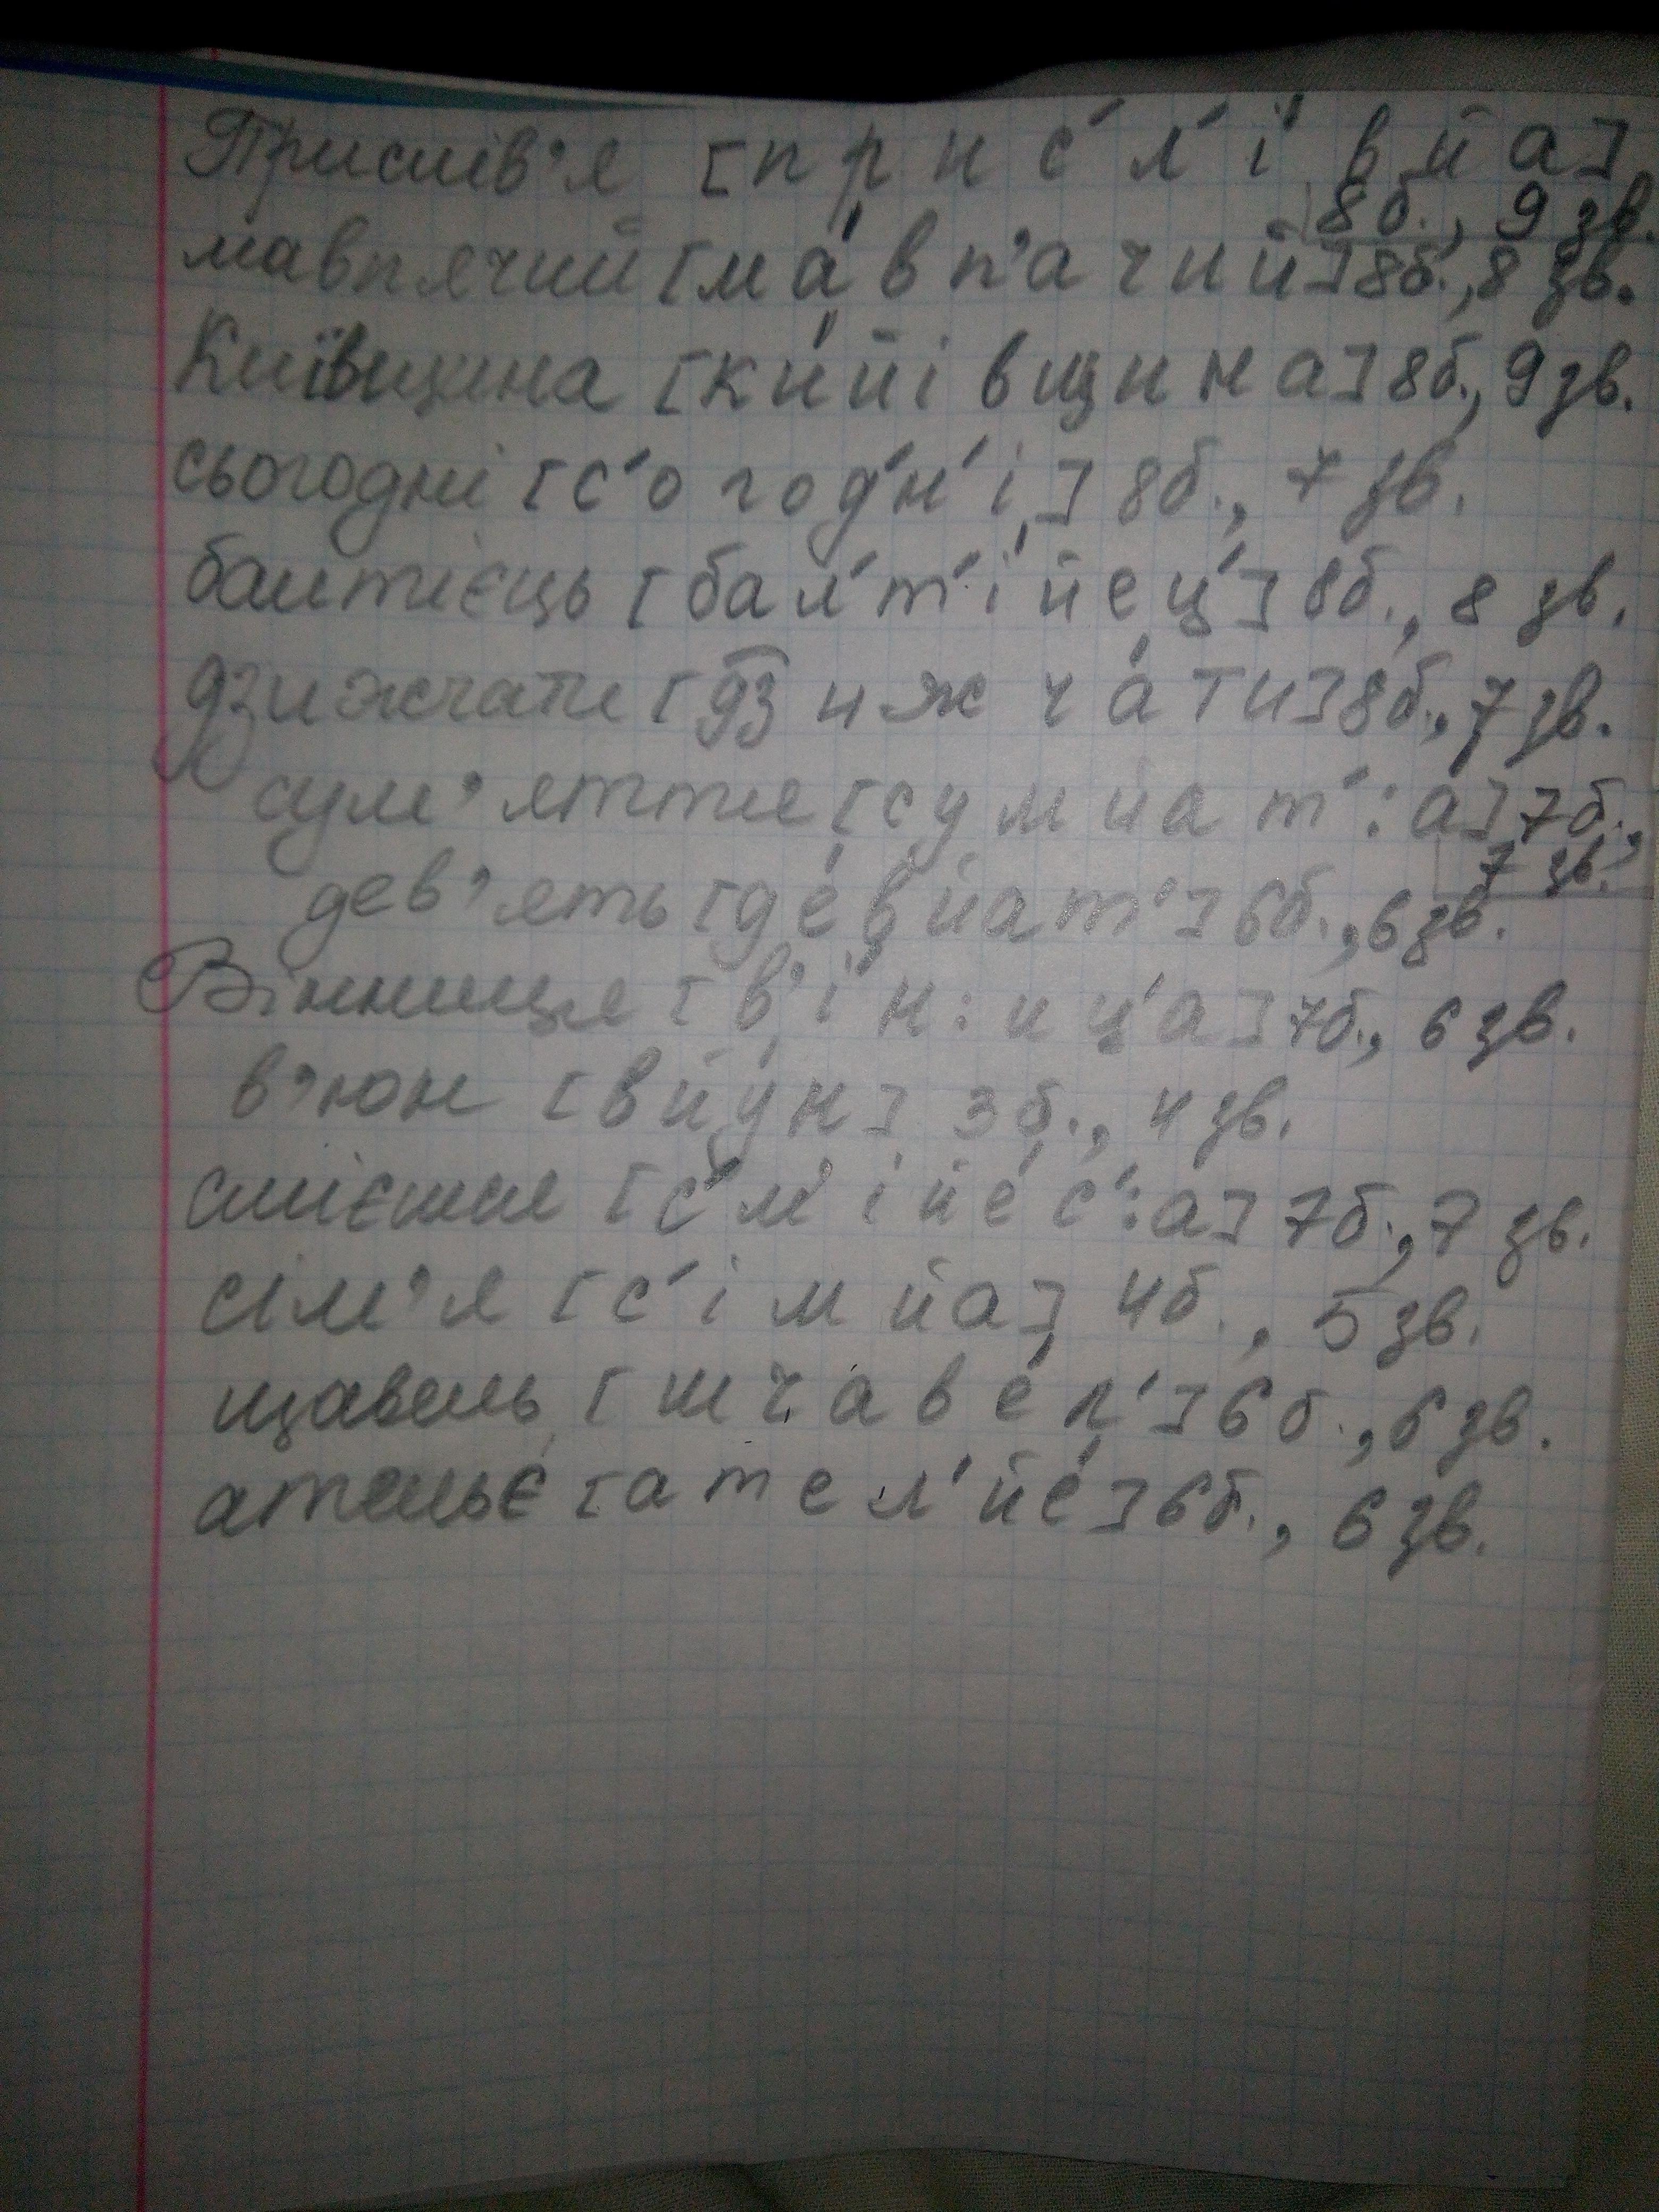 Прислів'я [п р и с′ л′ і́ в й а]
8б., 9 зв.
мавпячий [м а́ в п' а ч и й] 8б., 8 зв.
Київщина [к и́ й і в щ и н а] 8б., 9 зв.
сьогодні [с′ о г о д′ н′ і] 8б., 7 зв.
балтієць [б а л′ т′ і́ й е ц′] 8б., 8 зв.
дзижчати [д͡з и ж ч а́ т и] 8б., 7 зв.
сум'яття [с у м й а т′ : а] 7б.,
7 зв.
дев'ять [д е́ в й а т′] 6б., 6 зв.
Вінниця [в' і́ н : и ц′ а] 7б., 6 зв.
в'юн [в й у н] 3 б., 4 зв.
смієшся [с′ м' і й е́ с′ : а] 7б., 7 зв.
сім'я [с′ і м й а] 4б., 5 зв.
щавель [ш ч а в е́ л′] 6 б., 6 зв.
ательє [а т е л′ й е́] 6б., 6 зв.